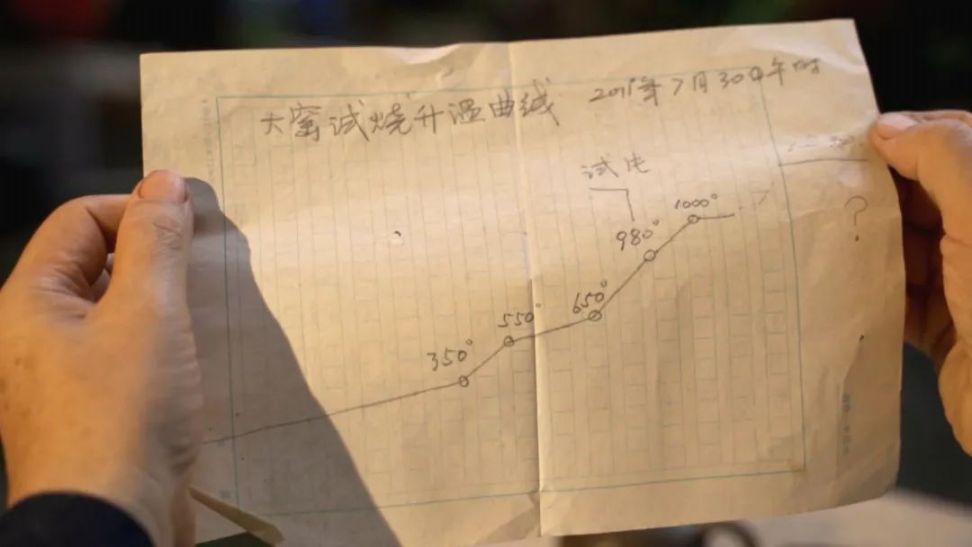 大窑试烧升温曲线
2015年7月30日午时
试电
1000°
980°
650°
550°
350°
?